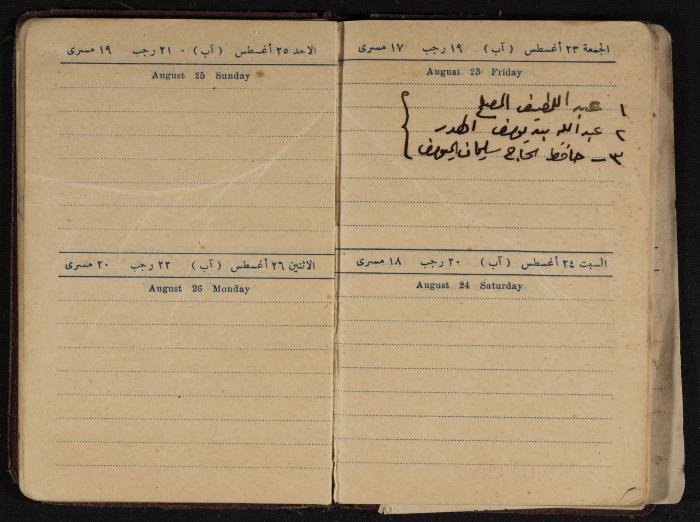 الجمعة ٢٣ أغسطس (آب) ١٩ رجب ١٧ مسرى
August 23 Friday
١ عبد اللطيف
٢ عبدالله بن يوسف
٣ - حافظ الحاج سليمان اليوسف
السبت ٢٤ أغسطس (آب) ٢٠ رجب ١٨ مسرى
August 24 Saturday
الاحد ٢٥ أغسطس (آب) ٠ ٢١ رجب ١٩ مسرى
August 25 Sunday
الاثنين ٢٦ أغسطس (آب) ٢٢ رجب ٢٠ مسرى
August 26 Monday